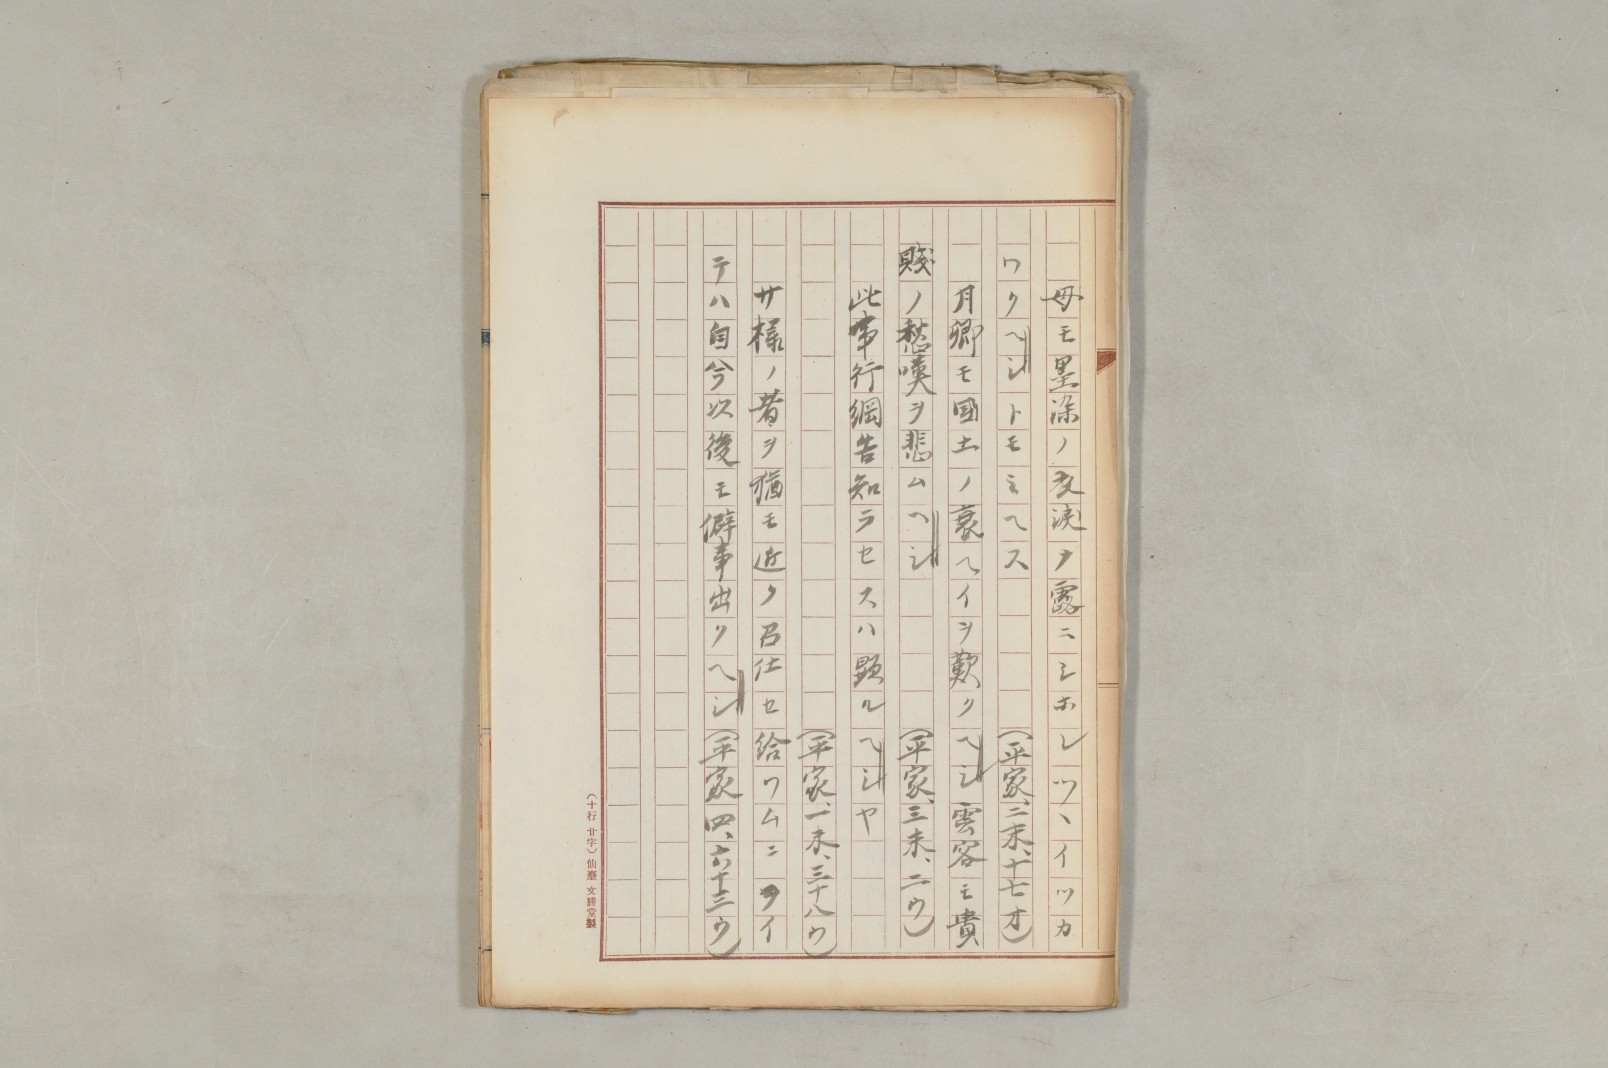 母モ墨染ノ衣涙ヲ露ニシホレツヽイツカ
ワクヘシトモミヘス（平家、二末、十七オ）
月卿モ国土ノ衰ヘイヲ歎クヘシ雲客モ貴
賤ノ愁嘆ヲ悲ムヘシ（平家、三末、二ウ）
此事行綱告知ラセスハ顕ルヘシヤ
（平家、一末、三十八ウ）
サ様ノ者ヲ猶モ近ク召仕セ給ワムニヲイ
テハ自今以後モ僻事出クヘシ（平家四、六十三ウ）
（十行 廿字）仙臺 文勝堂製